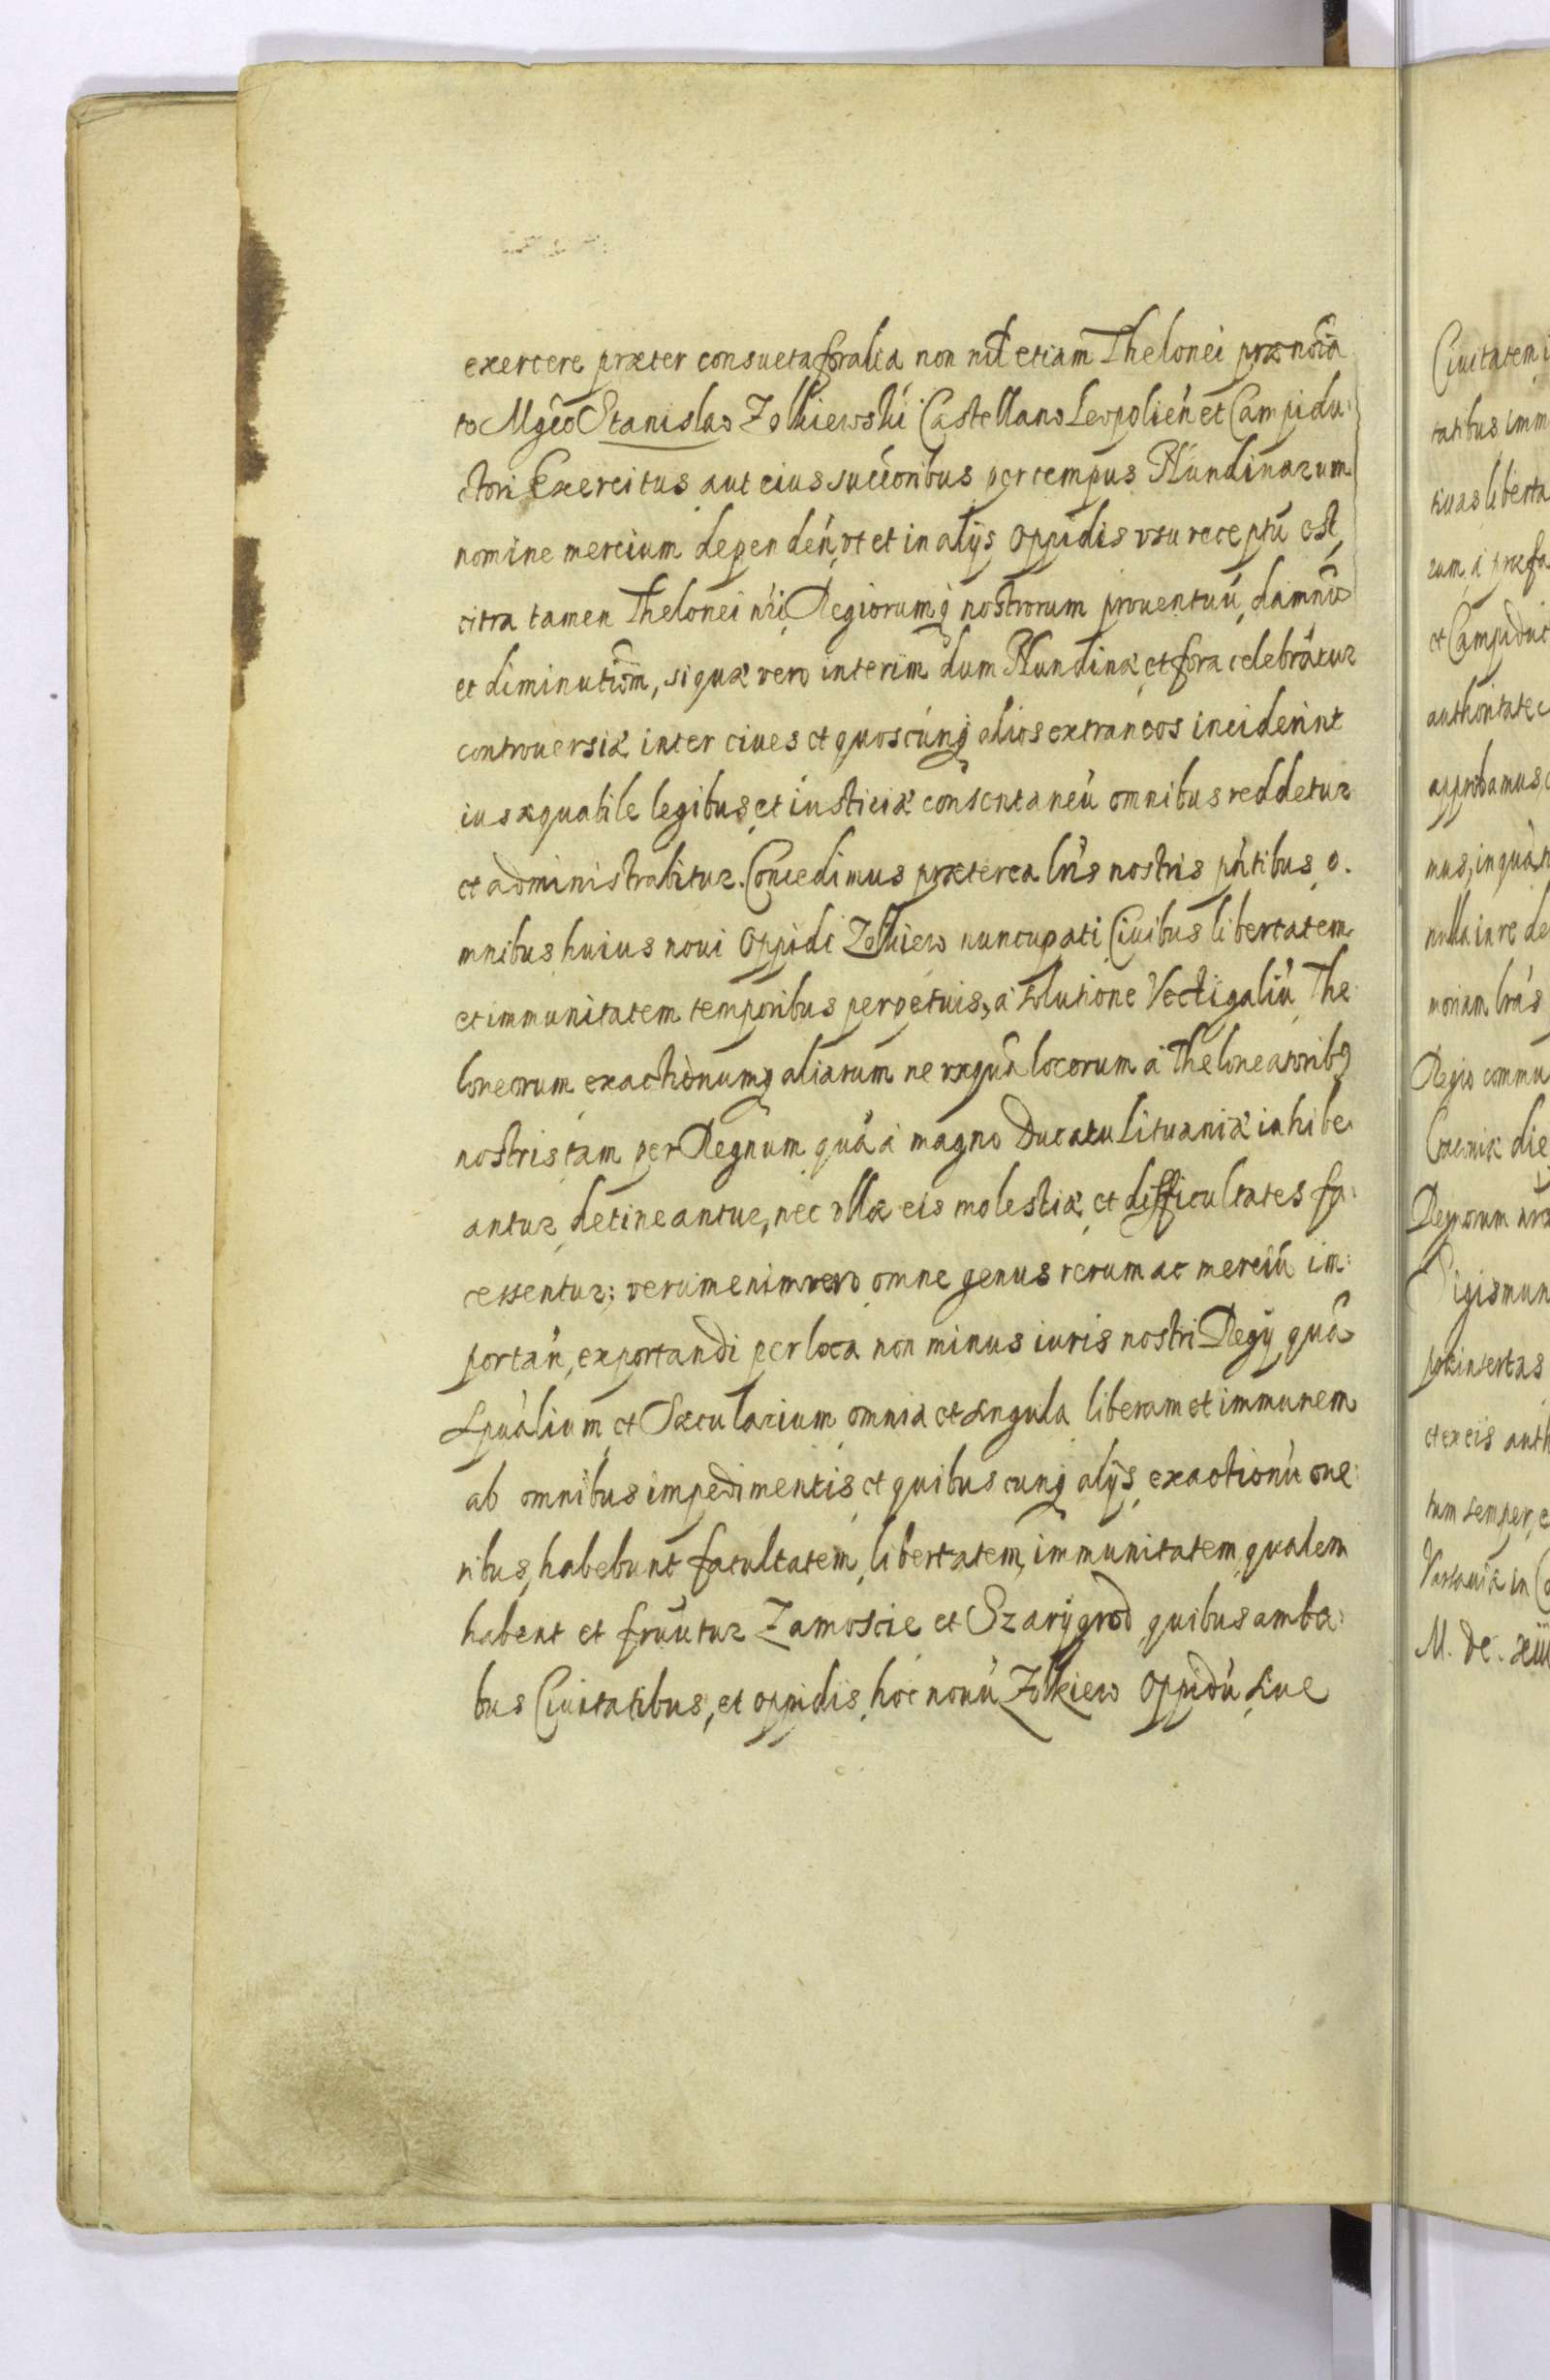 exercere præter consueta foralia non nil etiam Thelonei prænoīa
to Mgco Stanislao Zolkiewski Castellano Leopolień et Campidu:
ctori Exercitus aut eius succoribus per tempus Nundinarum
nomine mercium dependeń, vt et in alijs Oppidis vsu receptū est,
citra tamen Thelonei nri Regiorumq nostrorum prouentuū, damnū
et diminutiom, si quæ vero interim dum Nundinæ, et fora celebrātur
controuersiæ inter ciues et quoscunq alios extraneos inciderint
ius æquabile legibus, et iusticiæ consentaneū omnibus reddetur
et administrabitur. Concedimus præterea lris nostris pntibus, o.
mnibus huius noui Oppidi Zolkiew nuncupati Ciuibus libertatem
et immunitatem temporibus perpetuis, à solutione Vectigaliū, The:
loneorum exactionumq aliarum ne vsquā locorum à Theloneatorib9
nostris tam per Regnum quā à magno Ducatu Lituaniæ inhibe.
antur, detineantur, nec vllæ eis molestiæ, et difficultates fa:
cessentur; verum enimvero omne genus rerum ac merciū im:
portań, exportandi per loca non minus iuris nostri Regij, quā
Spualium et Sæcularium omnia et singula liberam et immunem
ab omnibus impedimentis, et quibuscunq alijs, exactionū one:
ribus, habebunt facultatem, libertatem, immunitatem, qualem
habent et fruūtur Zamoscie et Szarijgrod, quibus amba:
bus Ciuitatibus, et oppidis, hoc nouū Zolkiew Oppidū siue
Ciuitatem
tatibus imm
tiuas liberta
rum, à præfa
et Campiduc
authoritate
approbamus,
mus, in quań
nulla in re de
moriam lras
Regio commu
Cracouiæ die
Regnorum nrō
Sigismun
præinsertas
et ex eis auth
tum semper, e
Varsauiæ in
M. DC. XIII